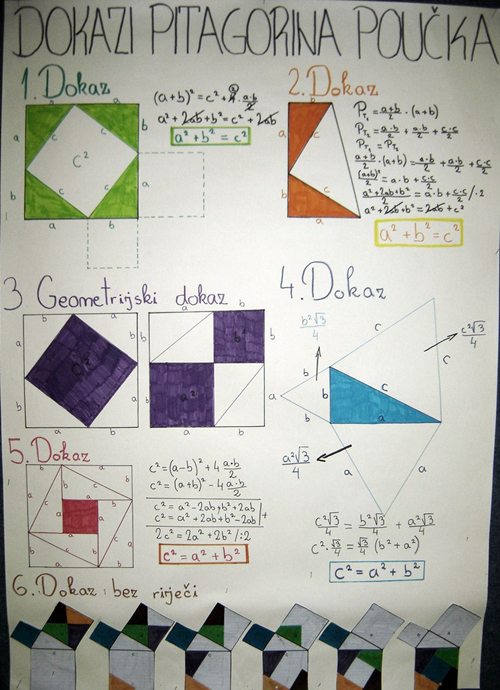 DOKAZI PITAGORINA POUČKA
1. Dokaz
a
b
a
b
b
a
a
b
c
c
c
c
c²
a
b
(a+b)² = c² + 4·a·b/2
a² + 2ab + b² = c² + 2ab
a² + b² = c²
2. Dokaz
b
a
c
c
b
a
P_T₁ = a+b/2 · (a+b)
P_T₂ = a·b/2 + a·b/2 + c·c/2
P_T₁ = P_T₂
a+b/2 · (a+b) = a·b/2 + a·b/2 + c·c/2
(a+b)²/2 = a·b + c·c/2
a²+2ab+b²/2 = a·b + c·c/2 /·2
a² + 2ab + b² = 2ab + c²
a² + b² = c²
3. Geometrijski dokaz
b
a
a
b
b
a
b
a
c²
a
b
b
b
a
a
a
b
b²
a²
4. Dokaz
b²√3/4
c²√3/4
a²√3/4
c
c
c
b
b
b
a
a
a
c²√3/4 = b²√3/4 + a²√3/4
c²·√3/4 = √3/4 (b² + a²)
c² = a² + b²
5. Dokaz
c² = (a-b)² + 4 a·b/2
c² = (a+b)² - 4 a·b/2
c² = a² - 2ab + b² + 2ab
c² = a² + 2ab + b² - 2ab
+
2c² = 2a² + 2b² /:2
c² = a² + b²
6. Dokaz bez riječi